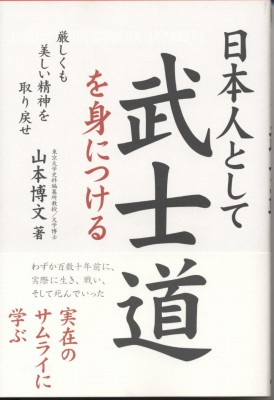 日本人として
武士道
を身につける
厳しくも
美しい精神を
取り戻せ
東京大学史料編纂所教授/文学博士
山本博文 著
わずか百数十年前に、
実際に生き、戦い、
そして死んでいった
実在の
サムライに
学ぶ